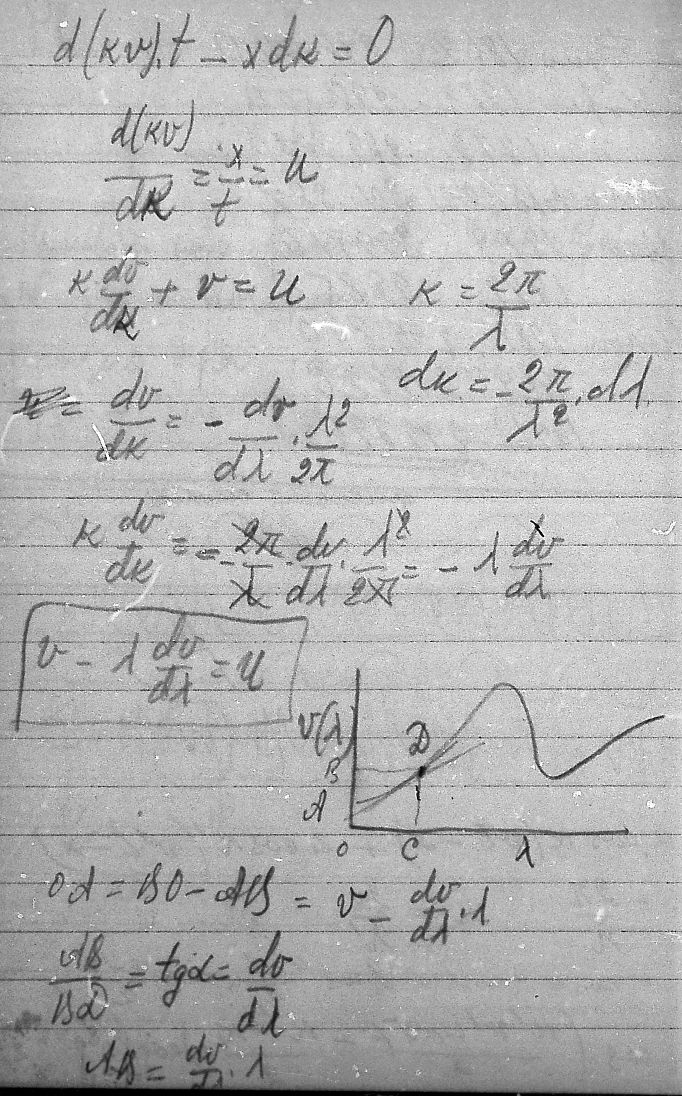 d(kv).t - xdk = 0
d(kv)/dk = x/t = u
k dv/dk + v = u
k = 2π/λ
dk = -2π/λ² . dλ
= dv/dk = - dv/dλ . λ²/2π
k dv/dk = - 2π/λ . dv/dλ . λ²/2π = - λ dv/dλ
v - λ dv/dλ = u
v(λ)
D
B
A
0 C λ
OA = BO - AB = v - dv/dλ . λ
AB/BD = tgα = dv/dλ
AB = dv/dλ . λ